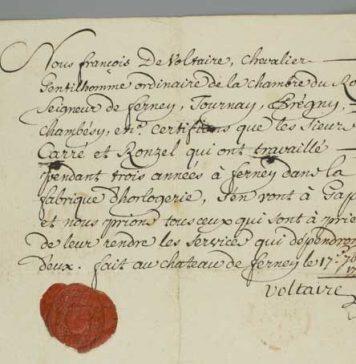 Nous françois De Voltaire, chevalier
Gentilhomme ordinaire de la chambre du Ro
Seigneur de ferney, Tournay, Prégny,
chambésy, etc. certifions que les Sieur
Carré et Ronzel qui ont travaillé
pendant trois années à ferney dans la
fabrique d'horlogerie, s'en vont à Gap
et nous prions tous ceux qui sont à prie
de leur rendre les Services qui dépendron
d'eux. fait au chateau de ferney le 17e
Voltaire